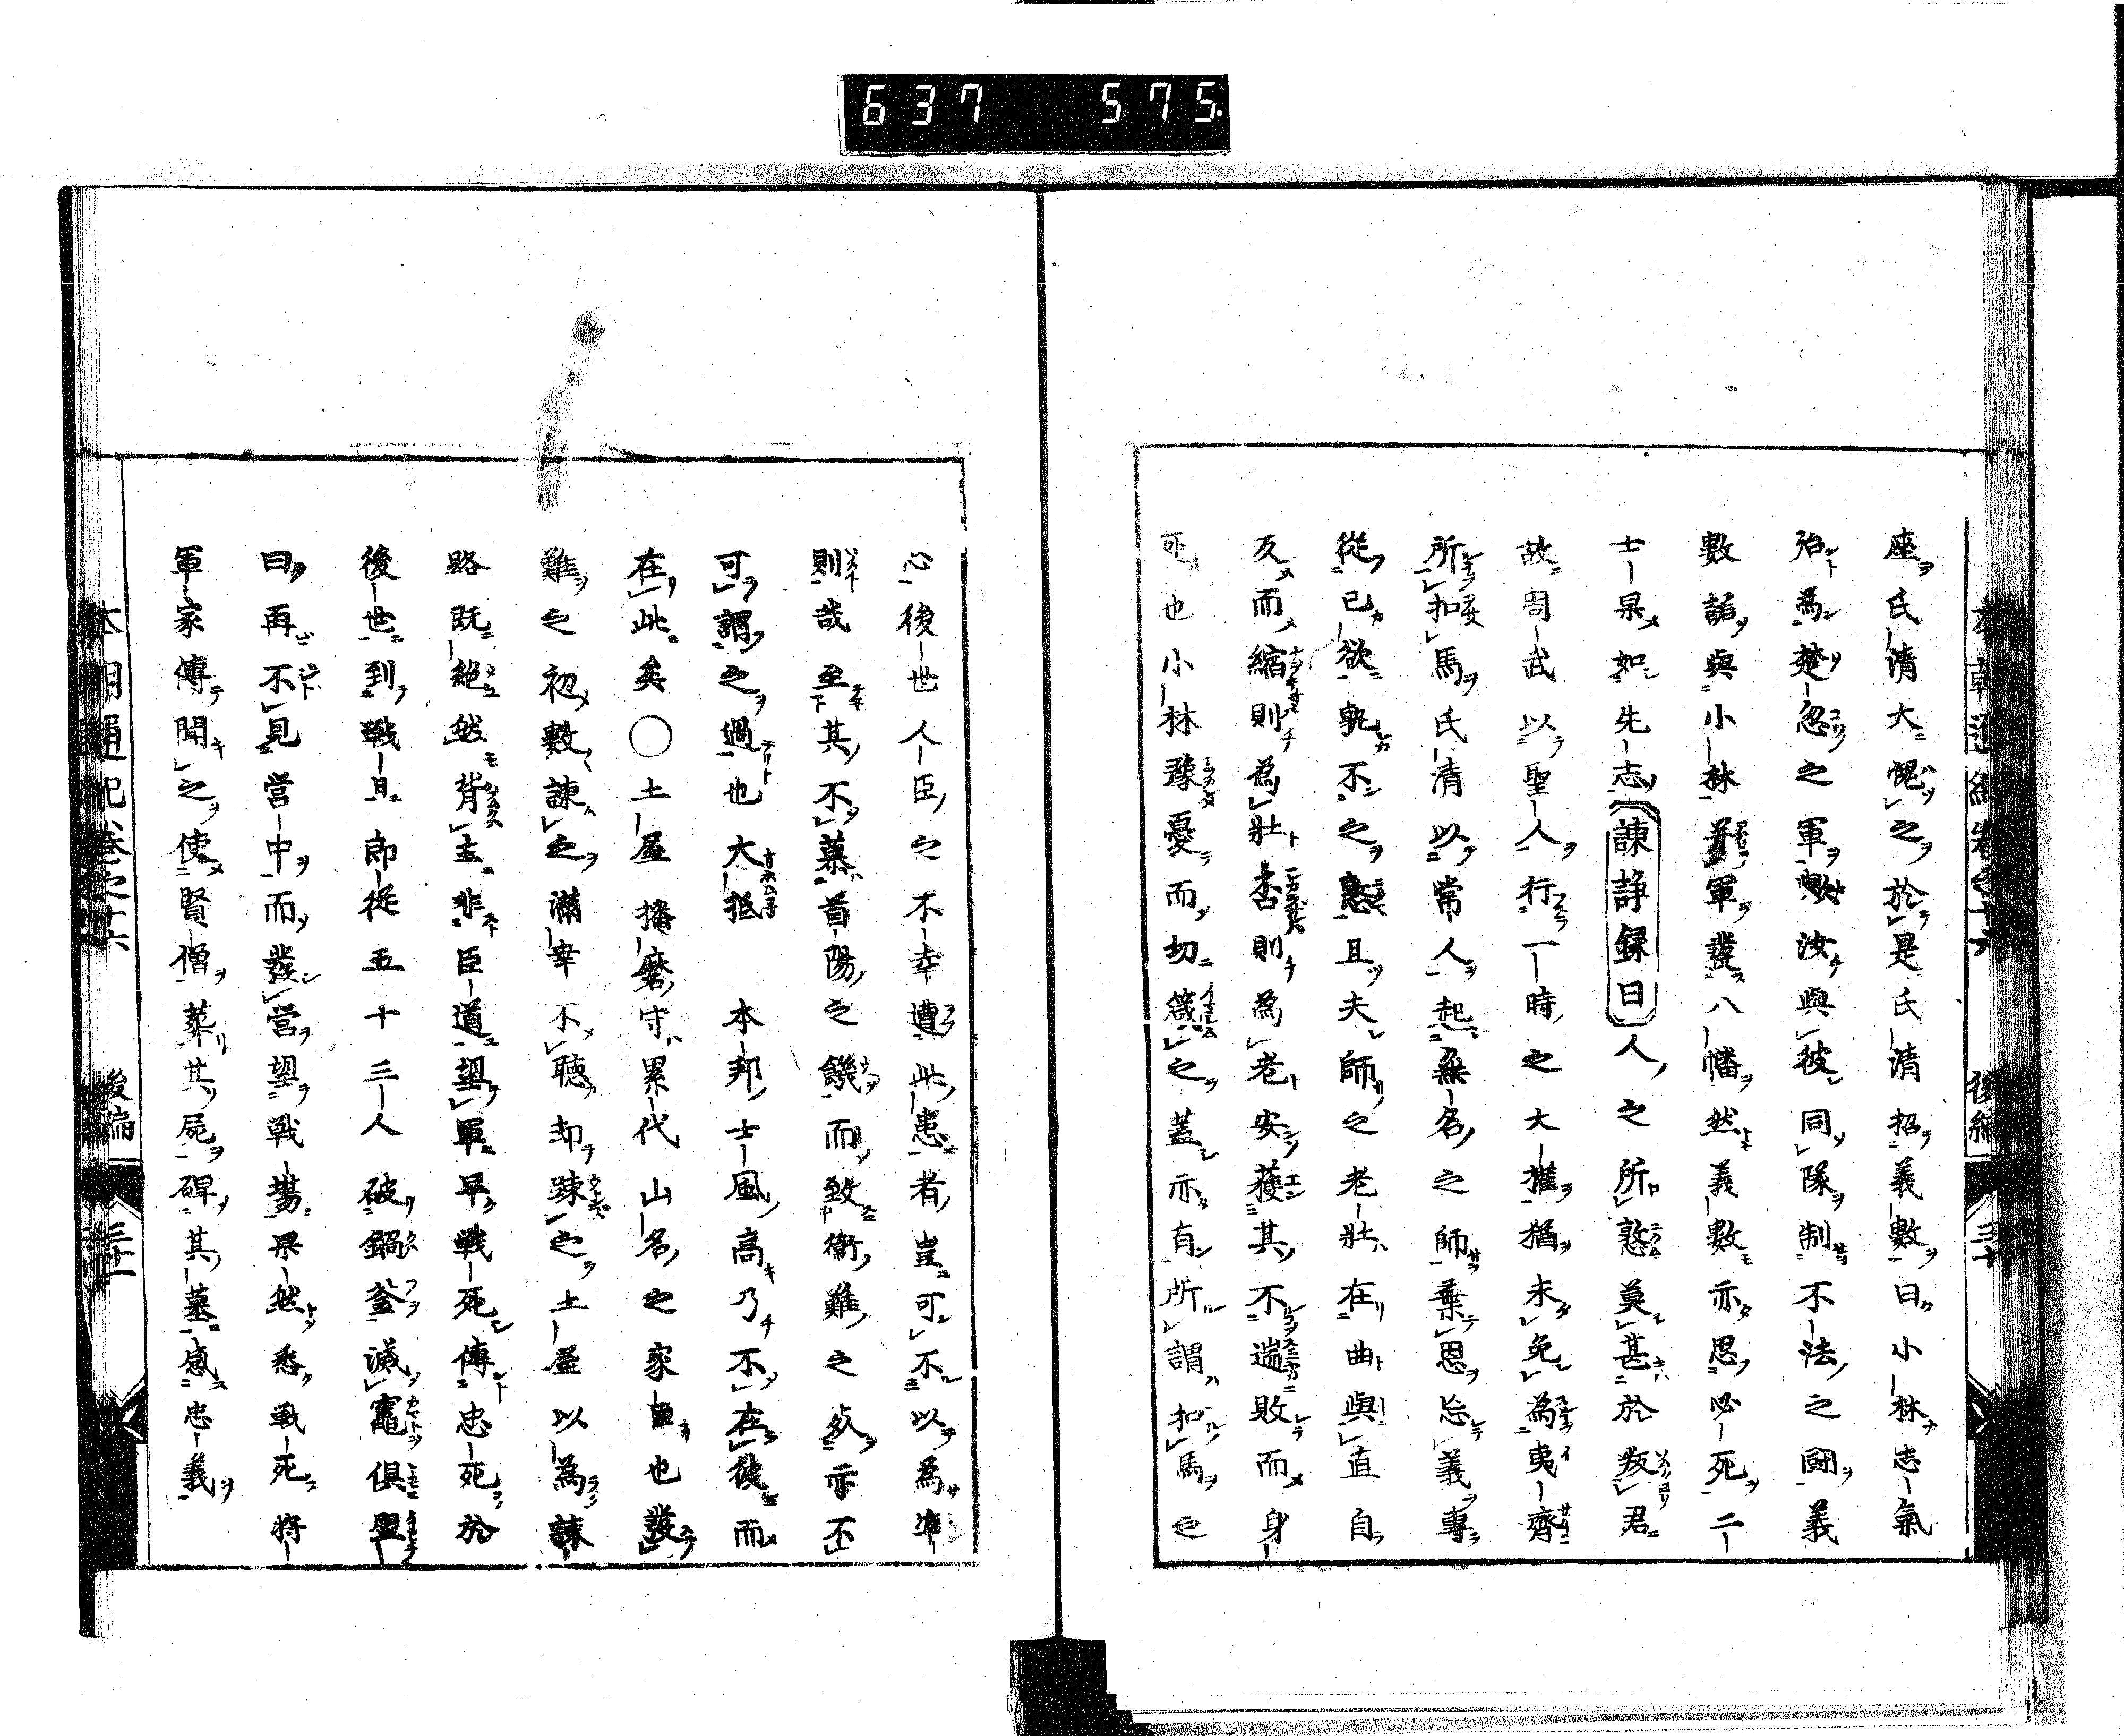 637 575
座氏清大愧之於是氏清招義數曰小林志氣
殆為楚忽之軍歟汝與彼同隊制不法之闘義
數詣與小林并軍發八幡然義數亦思必死二
士杲如先志諫諍録曰人之所憝莫甚於叛君
故周武以聖人行一時之大權猶未免為夷齊
所扣馬氏清以常人起無名之師棄恩忘義專
從己欲孰不之憝且夫師之老壯在曲與直自
反而縮則為壯否則為老安獲其不遄敗而身
死也小林豫憂而切箴之蓋亦有所謂扣馬之
心後世人臣之不幸遭此患者豈可不以為準
則哉至其不慕首陽之饑而致衛難之死亦不
可謂之過也大抵 本邦士風高乃不在彼而
在此矣○土屋播磨守累代山名之家臣也發
難之初數諫之滿幸不聴却疎之土屋以為諫
路既絶然背主非臣道望軍早戰死傳忠死於
後世到戰旦郎從五十三人破鍋釜滅竈倶盟
曰再不見営中而發営望戰場果然悉戰死將
軍家傳聞之使賢僧葬其屍碑其墓感忠義
本朝通紀巻之十六 後編 三十一